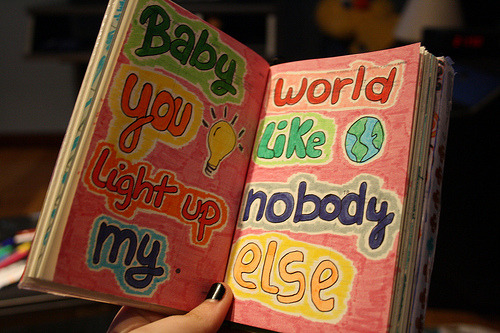 Baby
you
Light up
my.
world
Like
nobody
else